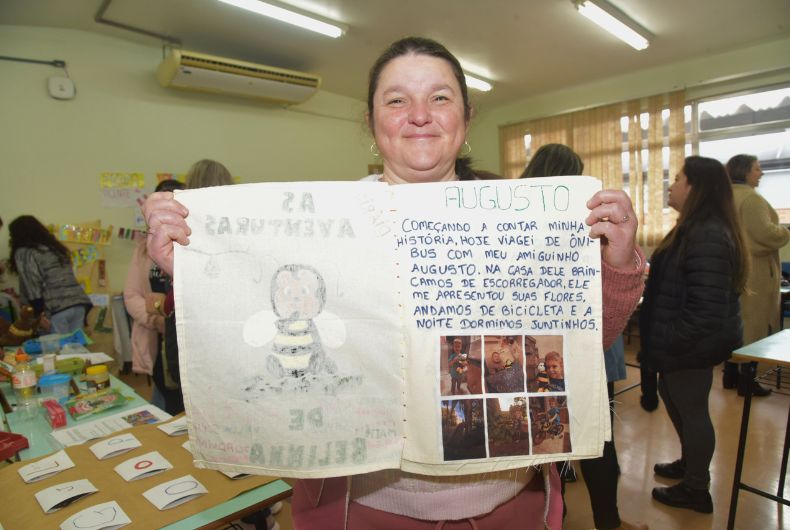 AS
AVENTURAS
DE
BELINHA
AUGUSTO
COMEÇANDO A CONTAR MINHA
HISTÓRIA, HOJE VIAGEI DE ÔNI-
BUS COM MEU AMIGUINHO
AUGUSTO. NA CASA DELE BRIN-
CAMOS DE ESCORREGADOR, ELE
ME APRESENTOU SUAS FLORES,
ANDAMOS DE BICICLETA E A
NOITE DORMIMOS JUNTINHOS.